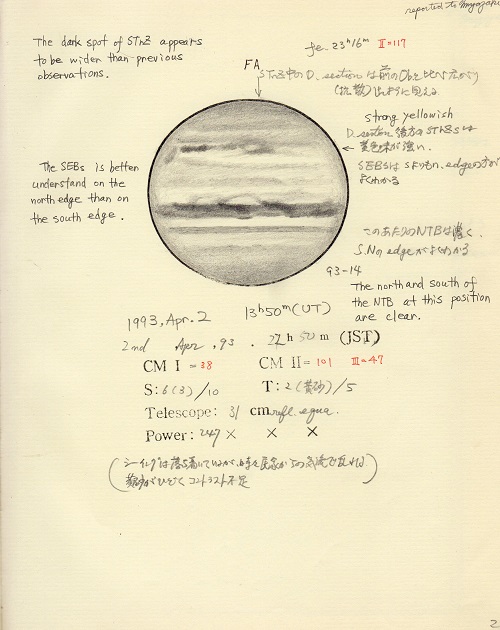 reported to Miyazaki
The dark spot of STnZ appears
to be wider than previous
observations.
fe. 23h16m II=117
FA
STnZ中のD. section は前のObs.と比べ広がり
(拡散)
strong yellowish
D. section 後方のSTnZは
← 黄色味が強い.
SEBsはSよりもN. edgeの方が
よくわかる
The SEBs is better
understand on the
north edge than on
the south edge.
このあたりのNTBは濃く.
S.Nのedgeがよくわかる
93-14
The north and south of
the NTB at this position
are clear.
1993, Apr. 2 13h50m (UT)
2nd Apr, 93. 22h 50m (JST)
CM I = 38 CM II = 101 III=47
S: 6(3)/10 T: 2(黄砂)/5
Telescope: 31 cm refl. equa.
Power: 247 × × ×
(シーイングは落ち着いているが、時々
黄砂がひどく コントラスト不足)
2